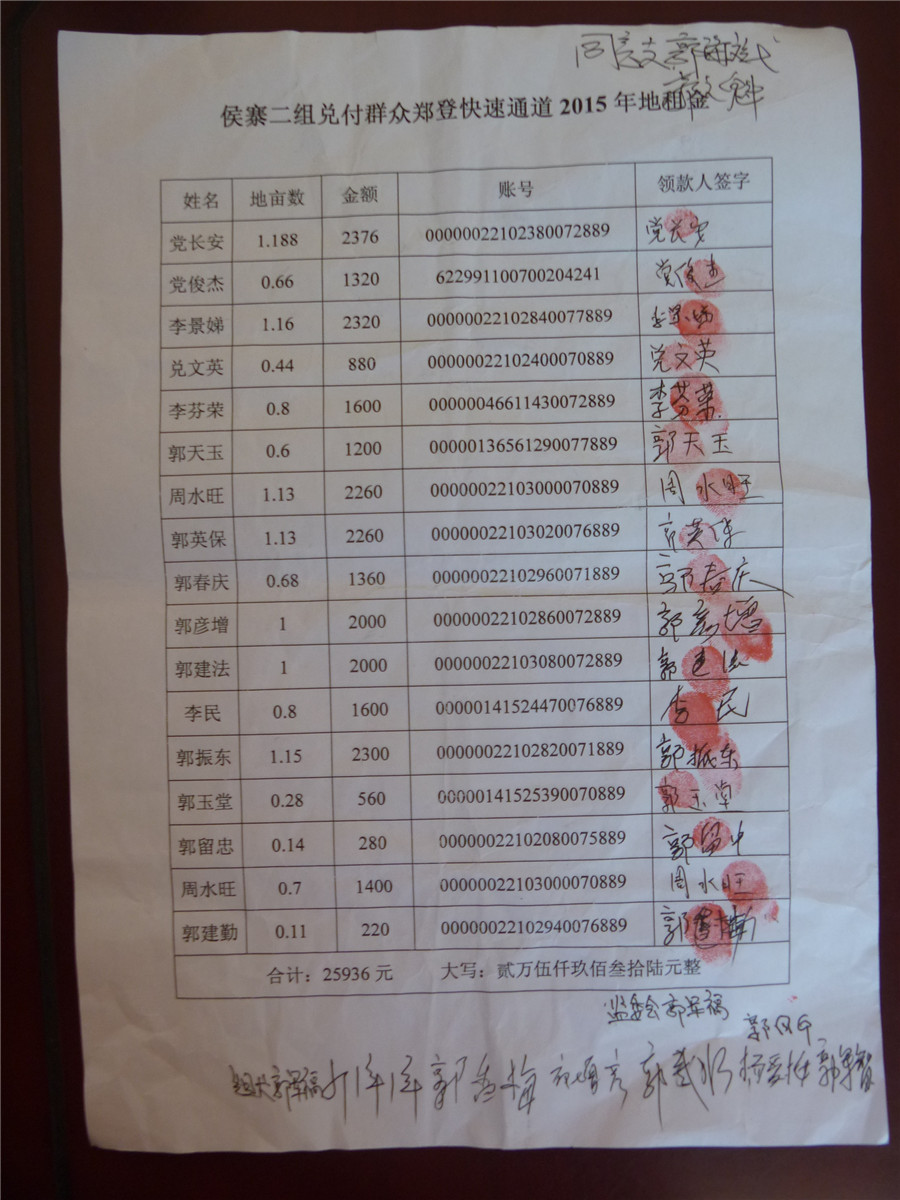 同意支
侯寨二组兑付群众郑登快速通道 2015 年地租金
姓名 地亩数 金额 账号 领款人签字
党长安 1.188 2376 00000022102380072889 党长安
党俊杰 0.66 1320 622991100700204241 党俊杰
李景娣 1.16 2320 00000022102840077889 李景娣
兑文英 0.44 880 00000022102400070889 兑文英
李芬荣 0.8 1600 00000046611430072889 李芬荣
郭天玉 0.6 1200 00000136561290077889 郭天玉
周水旺 1.13 2260 00000022103000070889 周水旺
郭英保 1.13 2260 00000022103020076889 郭英保
郭春庆 0.68 1360 00000022102960071889 郭春庆
郭彦增 1 2000 00000022102860072889 郭彦增
郭建法 1 2000 00000022103080072889 郭建法
李民 0.8 1600 00000141524470076889 李民
郭振东 1.15 2300 00000022102820071889 郭振东
郭玉堂 0.28 560 00000141525390070889 郭玉堂
郭留忠 0.14 280 00000022102080075889 郭留中
周水旺 0.7 1400 00000022103000070889 周水旺
郭建勤 0.11 220 00000022102940076889 郭建勤
合计：25936 元 大写：贰万伍仟玖佰叁拾陆元整
监委会郭军福
组长郭军福 郭香梅